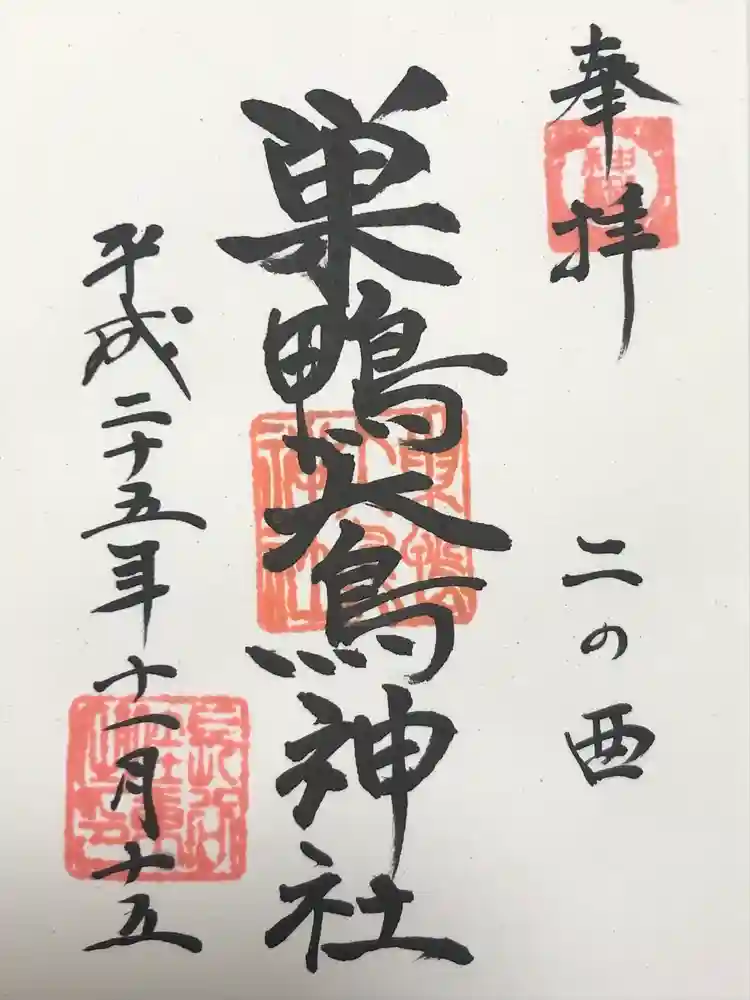 奉拝
二の酉
巣鴨大鳥神社
平成二十五年十一月十五